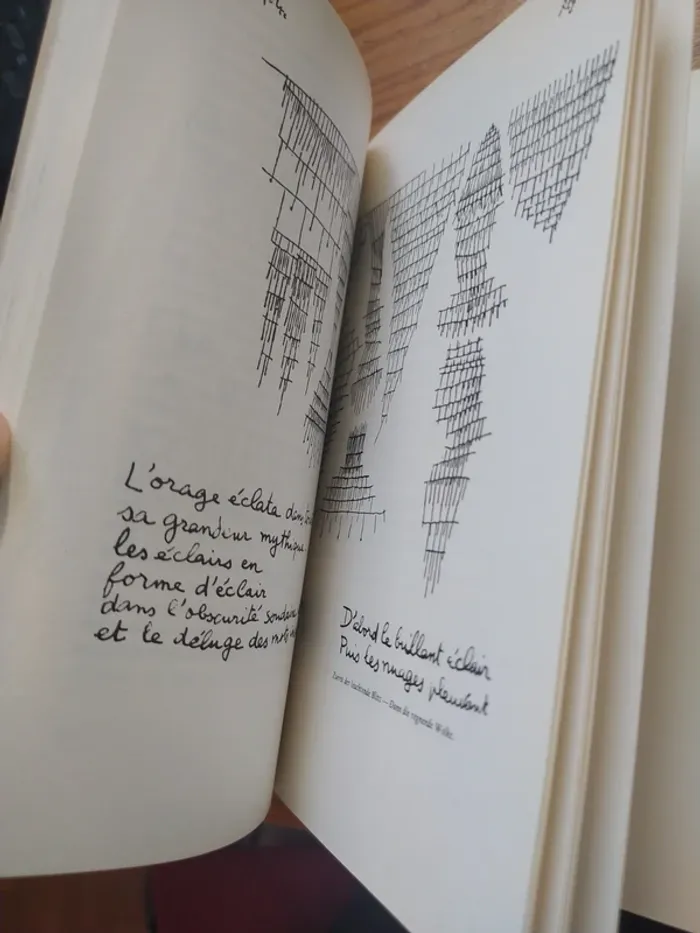 L'orage éclata dans
sa grandeur mythique
les éclairs en
forme d'éclair
dans l'obscurité
et le déluge des mots
D'abord le brillant éclair
Puis les nuages pleurant
Zuerst der leuchtende Blitz — Dann die regnende Wolke.